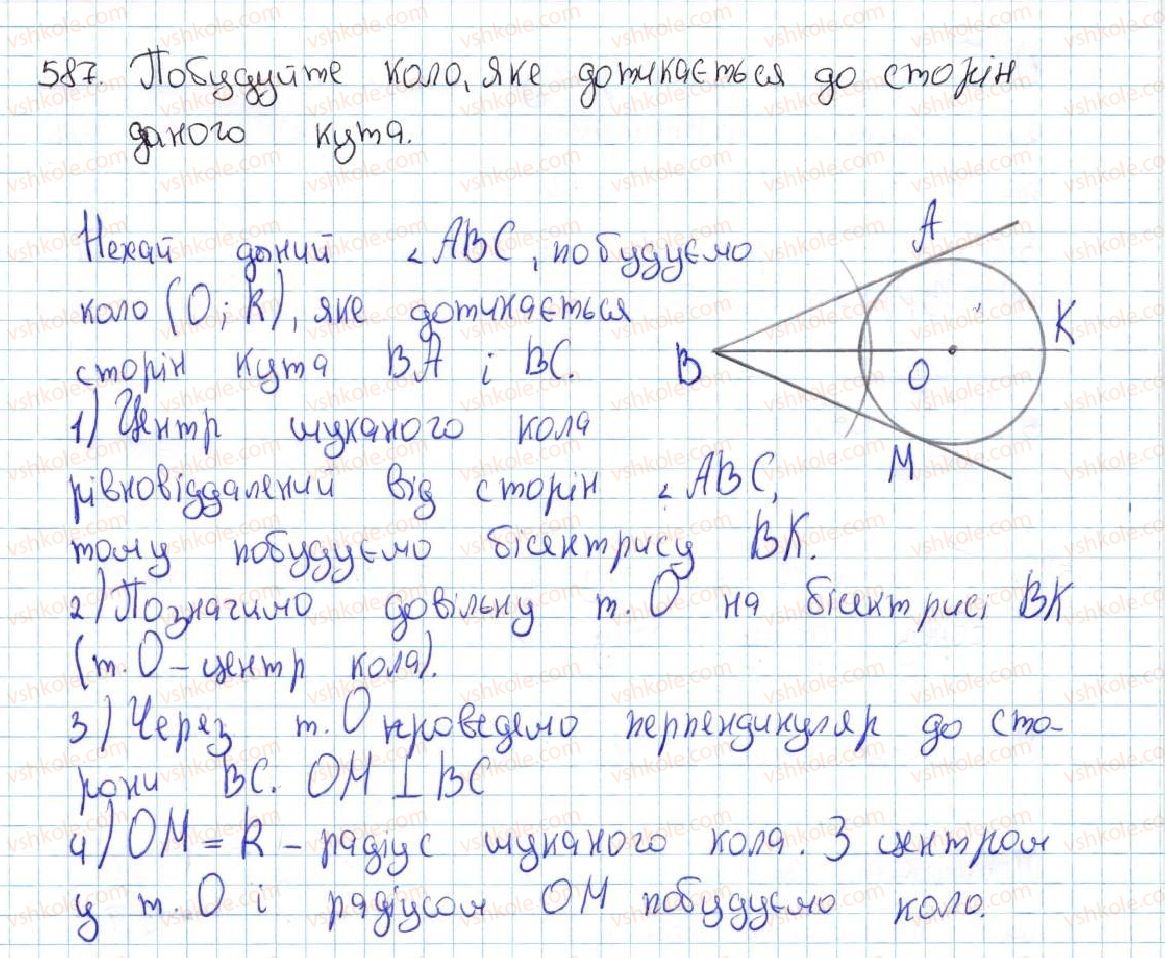 587. Побудуйте коло, яке дотикається до сторін
даного кута.
Нехай даний ∠ABC, побудуємо
коло (O; R), яке дотикається
сторін кута BA і BC.
1) Центр шуканого кола
рівновіддалений від сторін ∠ABC,
тому побудуємо бісектрису BK.
2) Позначимо довільну т. O на бісектрисі BK
(т. O – центр кола).
3) Через т. O проведемо перпендикуляр до сто-
рони BC. OM ⊥ BC
4) OM = R – радіус шуканого кола. З центром
у т. O і радіусом OM побудуємо коло.
A
K
B
O
M
vshkole.com